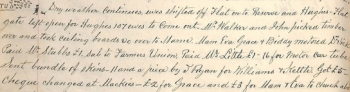 Dry weather continues. ewes shifted off Flat into Reserve and Hughes Flat
gate left open for Hughes 107 ewes to Come out. Mr Walker and John picked timber
over and took ceiling boards &c over to Harris. Mam Eva Grace & Biddy motored
Paid Mr Stubbs £1. sub to Farmers Union. Paid Mr Little £1-16 for Motor Car tube
Sent bundle of skins. Hand a piece by T Ryan for Williams & Kettle. Got £5-
Cheque changed at Mackies - £2 for Grace and £3 for Mam & Eva to